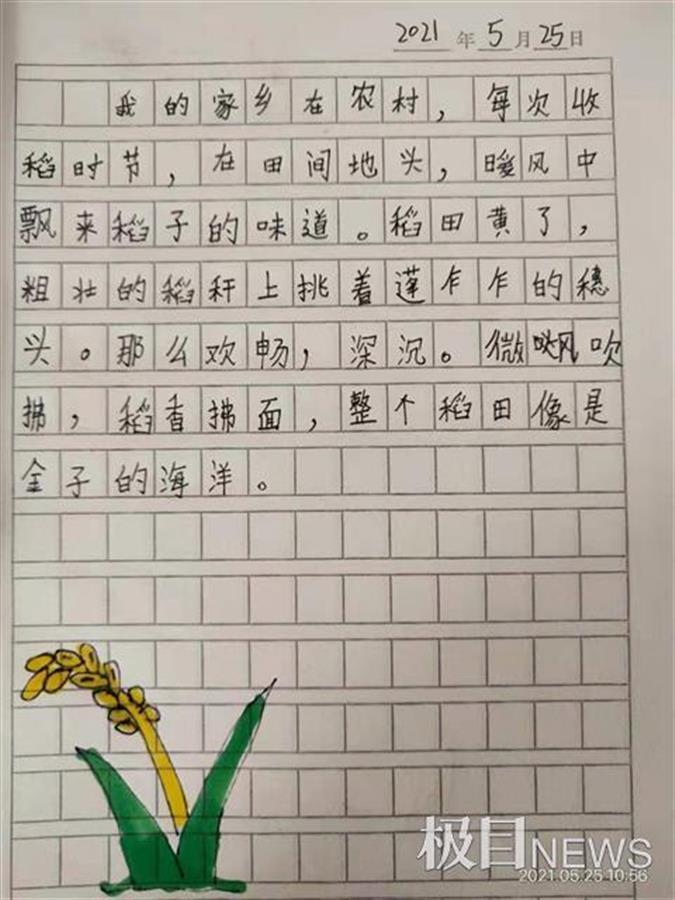 2021年5月25日
我的家乡在农村，每次收
稻时节，在田间地头，暖风中
飘来稻子的味道。稻田黄了，
粗壮的稻秆上挑着蓬乍乍的穗
头。那么欢畅，深沉。微风吹
拂，稻香拂面，整个稻田像是
金子的海洋。
极目NEWS
2021.05.25 10:56